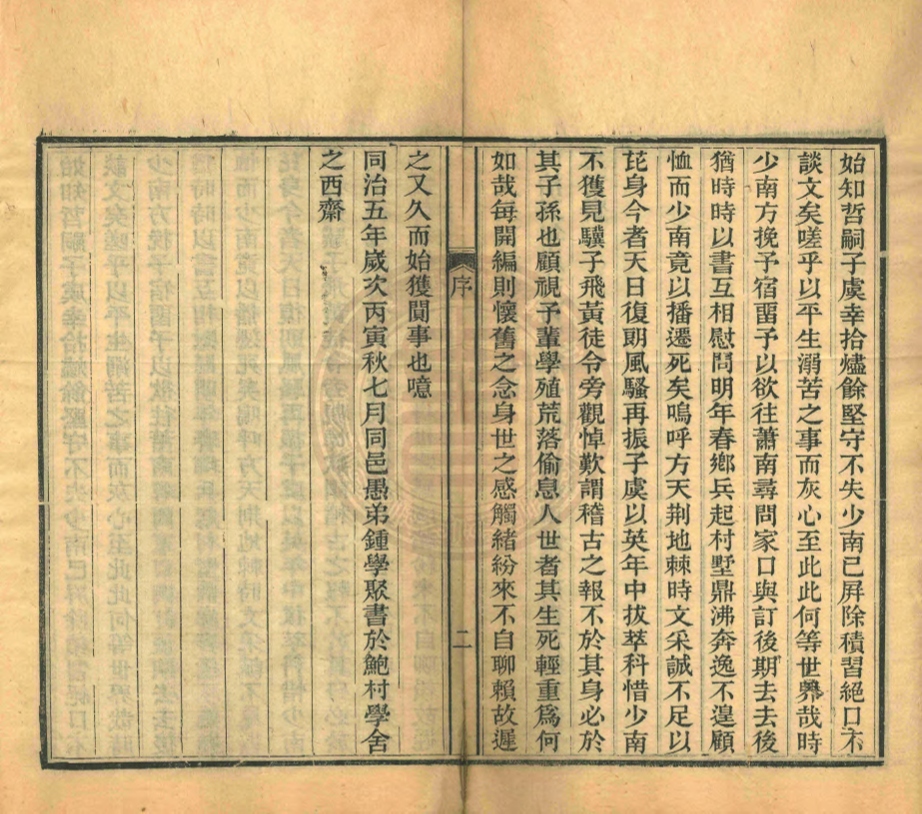 始知哲嗣子虞幸拾燼餘堅守不失少南已屛除積習絕口不
談文矣嗟乎以平生溺苦之事而灰心至此此何等世界哉時
少南方挽予宿畱予以欲往蕭南尋問家口與訂後期去去後
猶時時以書互相慰問明年春鄉兵起村墅鼎沸奔逸不遑顧
恤而少南竟以播遷死矣嗚呼方天荆地棘時文采誠不足以
芘身今者天日復朗風騷再振子虞以英年中拔萃科惜少南
不獲見驥子飛黃徒令旁觀悼歎謂稽古之報不於其身必於
其子孫也顧視子輩學殖荒落偷息人世者其生死輕重爲何
如哉每開編則懷舊之念身世之感觸緒紛來不自聊賴故遲
序
二
之又久而始獲閱事也噫
同治五年歲次丙寅秋七月同邑愚弟鍾學聚書於鮑村學舍
之西齋